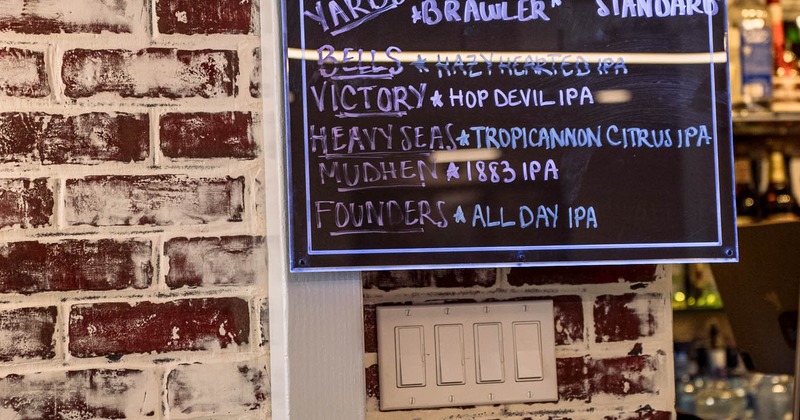 YARDS *BRAWLER* STANDARD
BELLS * HAZY HEARTED IPA
VICTORY * HOP DEVIL IPA
HEAVY SEAS * TROPICANNON CITRUS IPA
MUDHEN * 1883 IPA
FOUNDERS * ALL DAY IPA